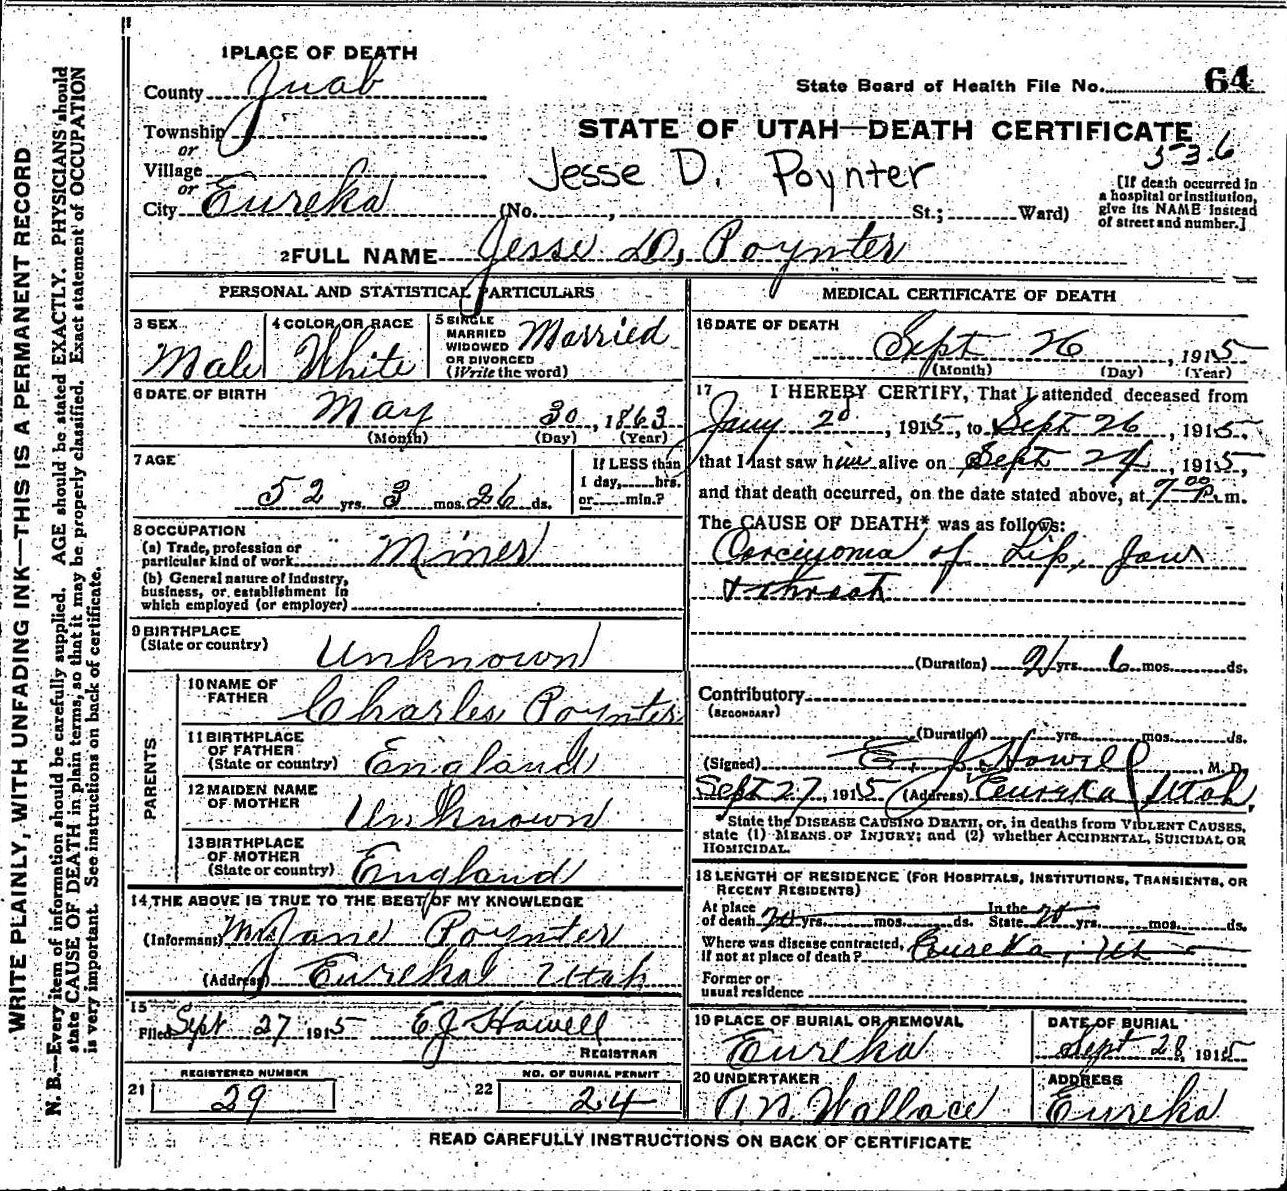 1 PLACE OF DEATH
County Juab
State Board of Health File No. 64
Township
or
STATE OF UTAH—DEATH CERTIFICATE
Village
Jesse D. Poynter
536
or
City Eureka (No. , St.; Ward)
[If death occurred in
a hospital or institution,
give its NAME instead
of street and number.]
2 FULL NAME Jesse D. Poynter
PERSONAL AND STATISTICAL PARTICULARS
3 SEX Male
4 COLOR OR RACE White
5 SINGLE
MARRIED
WIDOWED
OR DIVORCED
(Write the word)
Married
6 DATE OF BIRTH
May 30, 1863
(Month) (Day) (Year)
7 AGE
52 yrs. 3 mos. 26 ds.
If LESS than
1 day, hrs.
or min.?
8 OCCUPATION
(a) Trade, profession or
particular kind of work Miner
(b) General nature of industry,
business, or establishment in
which employed (or employer)
9 BIRTHPLACE
(State or country) Unknown
PARENTS
10 NAME OF
FATHER Charles Poynter
11 BIRTHPLACE
OF FATHER
(State or country) England
12 MAIDEN NAME
OF MOTHER Unknown
13 BIRTHPLACE
OF MOTHER
(State or country) England
14 THE ABOVE IS TRUE TO THE BEST OF MY KNOWLEDGE
(Informant) Mrs Jane Poynter
(Address) Eureka Utah
15
Filed Sept 27 1915 E J Howell
REGISTRAR
21 REGISTERED NUMBER
29
22 NO. OF BURIAL PERMIT
24
MEDICAL CERTIFICATE OF DEATH
16 DATE OF DEATH
Sept 26, 1915
(Month) (Day) (Year)
17 I HEREBY CERTIFY, That I attended deceased from
Jany 2d, 1915, to Sept 26, 1915,
that I last saw him alive on Sept 24, 1915,
and that death occurred, on the date stated above, at 7 00 P.m.
The CAUSE OF DEATH* was as follows:
Carcinoma of Lip, Jaw
& throat
(Duration) 2 yrs. 6 mos. ds.
Contributory
(SECONDARY)
(Duration) yrs. mos. ds.
(Signed) E. J. Howell, M. D.
Sept 27, 1915 (Address) Eureka Utah.
State the DISEASE CAUSING DEATH, or, in deaths from VIOLENT CAUSES,
state (1) MEANS OF INJURY; and (2) whether ACCIDENTAL, SUICIDAL OR
HOMICIDAL.
18 LENGTH OF RESIDENCE (FOR HOSPITALS, INSTITUTIONS, TRANSIENTS, OR
RECENT RESIDENTS)
At place In the
of death 20 yrs. mos. ds. State 20 yrs. mos. ds.
Where was disease contracted,
if not at place of death? Eureka, Ut
Former or
usual residence
19 PLACE OF BURIAL OR REMOVAL
Eureka
DATE OF BURIAL
Sept 28, 1915
20 UNDERTAKER
Wallace
ADDRESS
Eureka
READ CAREFULLY INSTRUCTIONS ON BACK OF CERTIFICATE
WRITE PLAINLY, WITH UNFADING INK—THIS IS A PERMANENT RECORD
N. B.—Every item of information should be carefully supplied. AGE should be stated EXACTLY. PHYSICIANS should
state CAUSE OF DEATH in plain terms, so that it may be properly classified. Exact statement of OCCUPATION
is very important. See instructions on back of certificate.